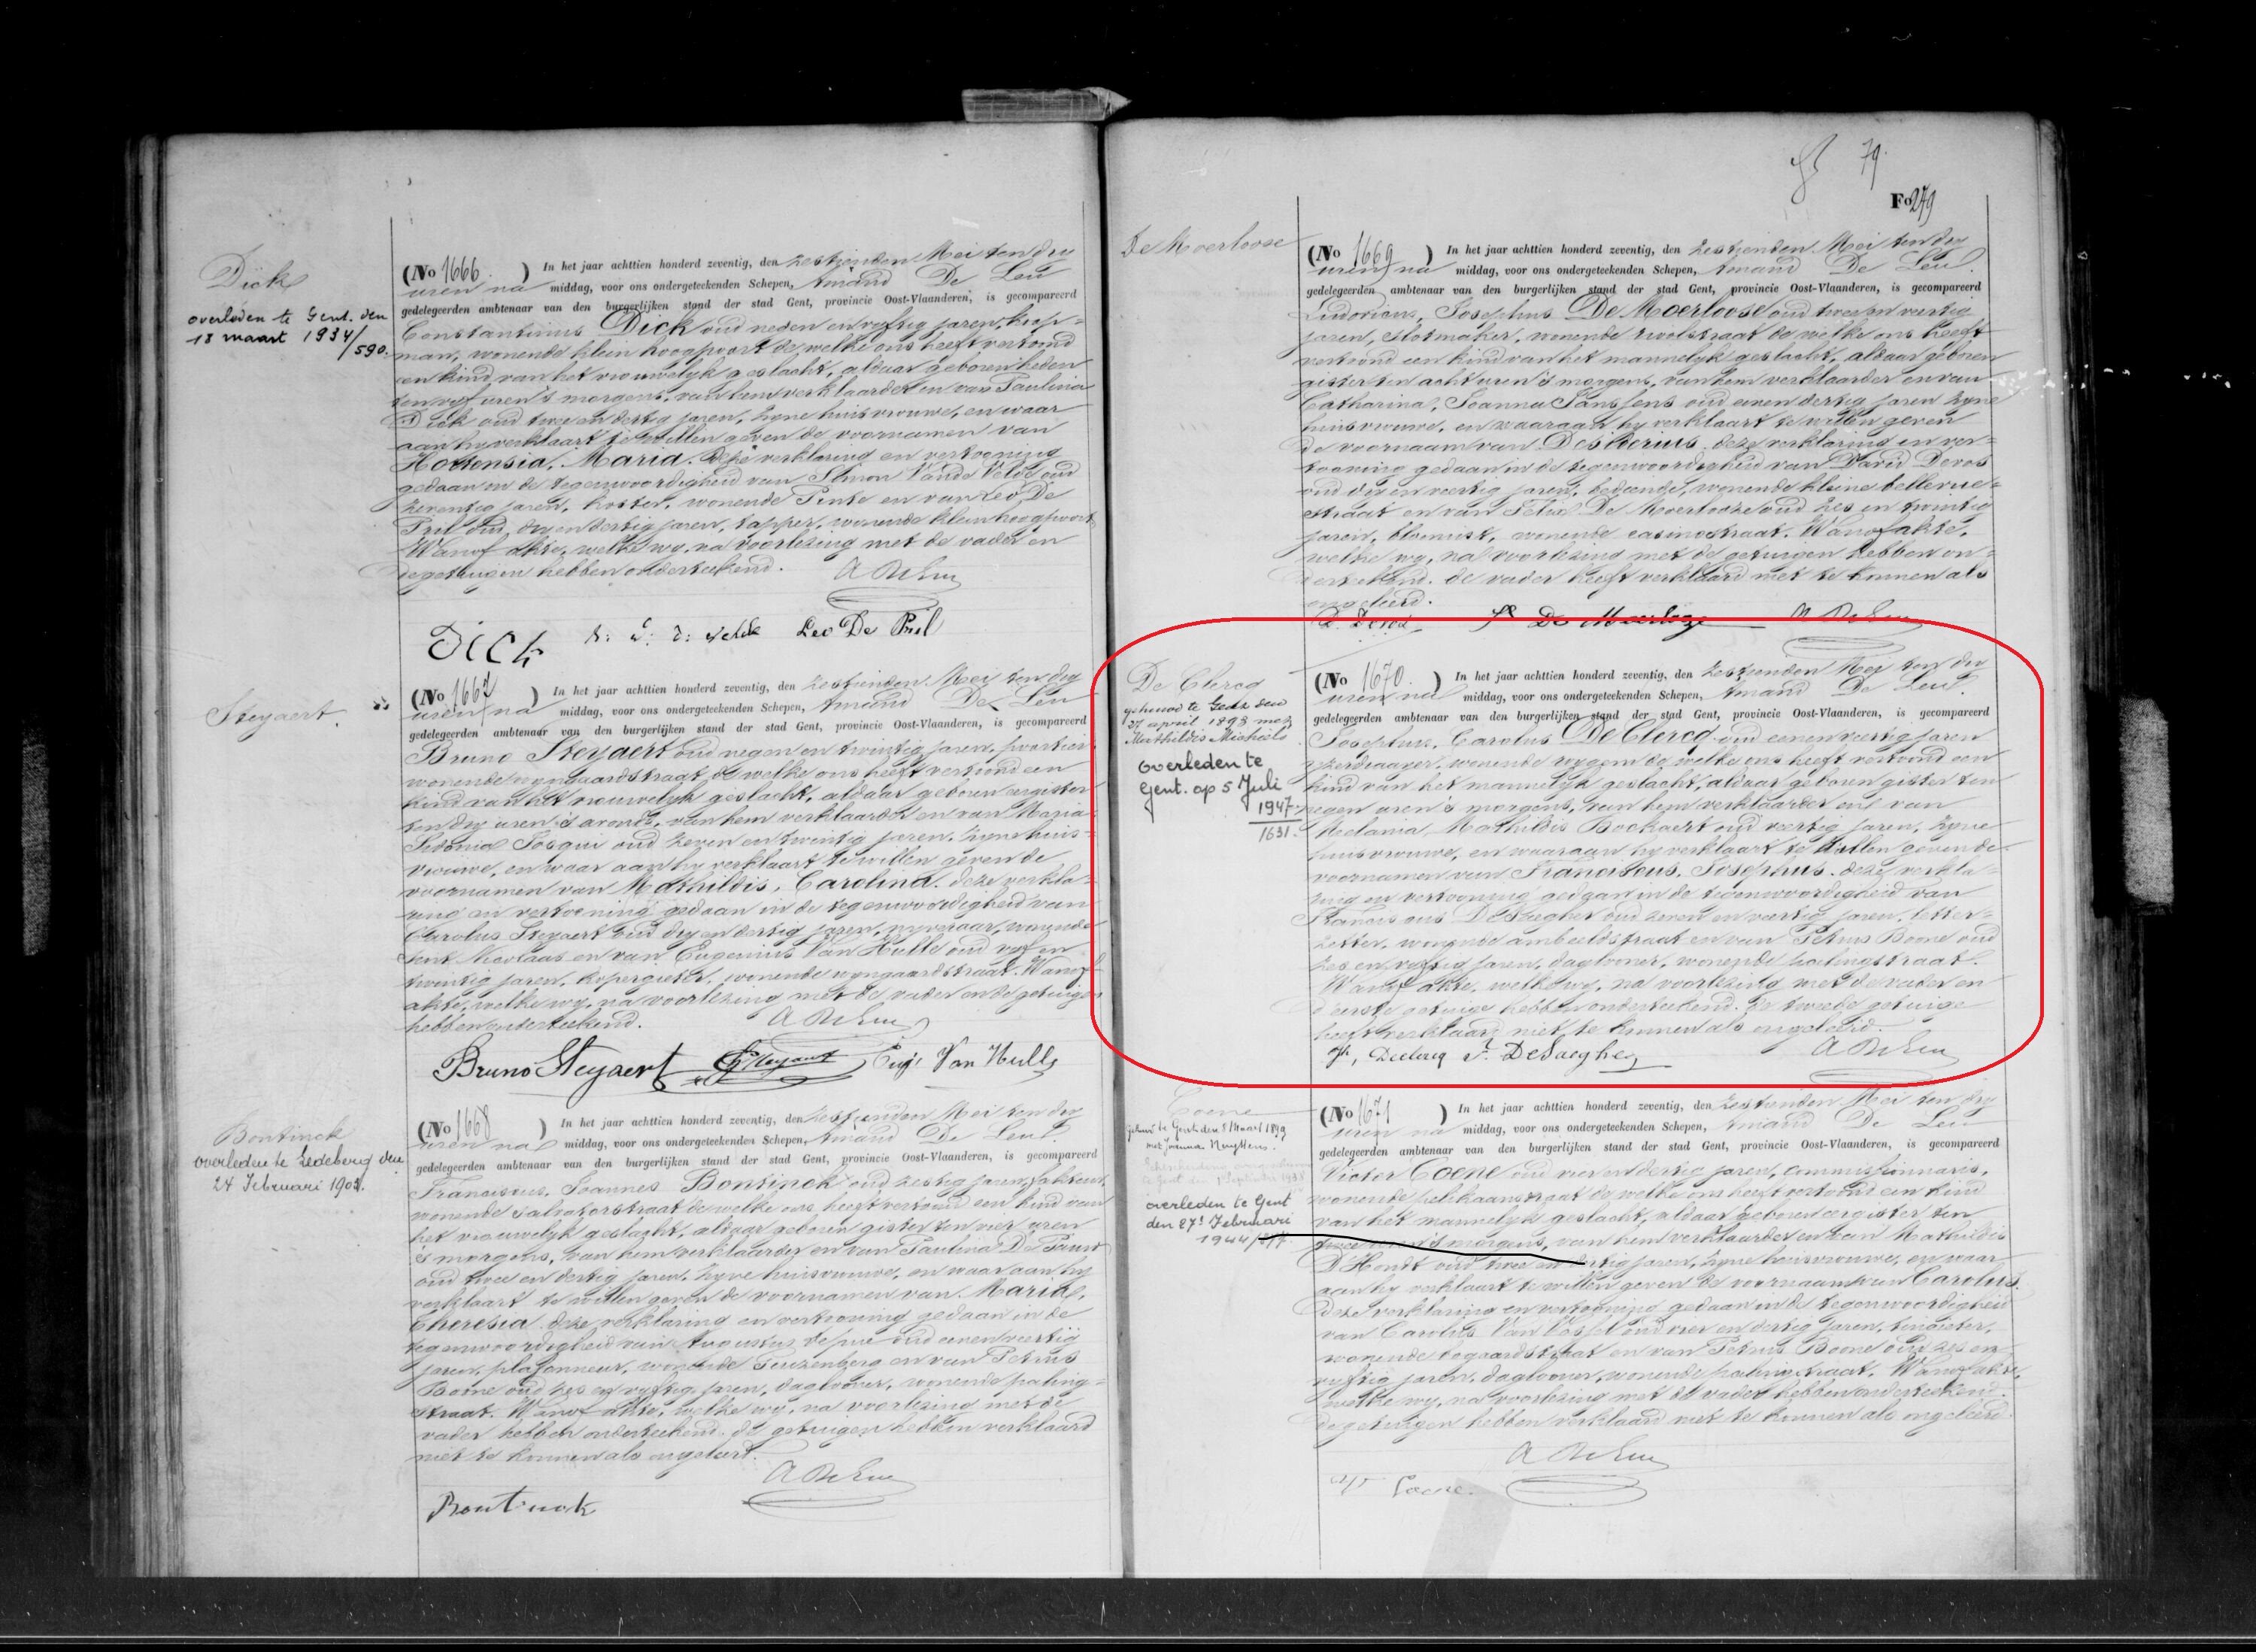 Dick
overleden te Gent. den
18 maart 1934/590.
(No 1666.) In het jaar achttien honderd zeventig, den zestienden Mei ten dry
uren na middag, voor ons ondergeteekenden Schepen, Amand De Leu
gedelegeerden ambtenaar van den burgerlijken stand der stad Gent, provincie Oost-Vlaanderen, is gecompareerd
Constantinus Dick oud negen en vyftig jaren, koop=
man, wonende klein hoogpoort de welke ons heeft vertoond
een kind van het vrouwelyk geslacht, aldaar geboren heden
ten vyf uren 's morgens, van hem verklaarder en van Paulina
Dick oud twee en dertig jaren, zyne huisvrouwe, en waar
aan hy verklaart te willen geven de voornamen van
Hortensia, Maria. deze verklaring en vertooning
gedaan in de tegenwoordigheid van Simon Vande Velde oud
zeventig jaren, koster, wonende Pinte en van Leo De
Pril oud dry en dertig jaren, tapper, wonende klein hoogpoort
Wanof akte, welke wy, na voorlezing met de vader en
de getuigen hebben onderteekend. A De Leu
Dick S: V: d: velde Leo De Pril
Steyaert.
(No 1667) In het jaar achttien honderd zeventig, den zestienden Mei ten dry
uren na middag, voor ons ondergeteekenden Schepen, Amand De Leu
gedelegeerden ambtenaar van den burgerlijken stand der stad Gent, provincie Oost-Vlaanderen, is gecompareerd
Bruno Steyaert oud negen en twintig jaren, poortier
wonende wyngaardstraat de welke ons heeft vertoond een
kind van het vrouwelyk geslacht, aldaar geboren eergister
ten dry uren 's avonds, van hem verklaarder en van Maria
Sidonia oud zeven en twintig jaren, zyne huis=
vrouwe, en waar aan hy verklaart te willen geven de
voornamen van Mathildis, Carolina. deze verkla=
ring en vertooning gedaan in de tegenwoordigheid van
Carolus Steyaert oud dry en dertig jaren, nyveraar, wonende
Sint Nicolaus en van Eugenius Van Hulle oud vyf en
twintig jaren, kopergieter, wonende wyngaardstraat. Wanof
akte, welke wy, na voorlezing met de vader en de getuigen
hebben onderteekend. A De Leu
Bruno Steyaert C Steyaert Eug: Van Hulle
Bontinck
overleden te Ledeberg den
24 Februari 1902.
(No 1668) In het jaar achttien honderd zeventig, den zestienden Mei ten dry
uren na middag, voor ons ondergeteekenden Schepen, Amand De Leu
gedelegeerden ambtenaar van den burgerlijken stand der stad Gent, provincie Oost-Vlaanderen, is gecompareerd
Franciscus, Joannes Bontinck oud zestig jaren,
wonende salvatorstraat de welke ons heeft vertoond een kind van
het vrouwelyk geslacht, aldaar geboren gister ten vier uren
's morgens, van hem verklaarder en van Paulina De Pauw
oud twee en dertig jaren, zyne huisvrouwe, en waar aan hy
verklaart te willen geven de voornamen van Maria,
Theresia. deze verklaring en vertooning gedaan in de
tegenwoordigheid van Augustus oud eenen veertig
jaren, plafonneur, wonende en van Petrus
Boone oud zes en vyftig jaren, daglooner, wonende paling=
straat. Wanof akte, welke wy, na voorlezing met de
vader hebben onderteekend. de getuigen hebben verklaard
niet te konnen als ongeleerd.
A De Leu
Bontinck
79.
Fo 279
De Moerloose
(No 1669) In het jaar achttien honderd zeventig, den zestienden Mei ten dry
uren na middag, voor ons ondergeteekenden Schepen, Amand De Leu.
gedelegeerden ambtenaar van den burgerlijken stand der stad Gent, provincie Oost-Vlaanderen, is gecompareerd
Ludovicus, Josephus De Moerloose oud twee en veertig
jaren, slotmaker, wonende de welke ons heeft
vertoond een kind van het mannelyk geslacht, aldaar geboren
gister ten acht uren 's morgens, van hem verklaarder en van
Catharina, Joanna Janssens oud eenen dertig jaren zyne
huisvrouwe, en waaraan hy verklaart te willen geven
de voornaam van Desiderius. deze verklaring en ver=
tooning gedaan in de tegenwoordigheid van David Devos
oud dry en veertig jaren, bediende, wonende kleine bellevue=
straat en van Felix De Moerloose oud zes en twintig
jaren, bloemist, wonende casinostraat. Wanof akte,
welke wy, na voorlezing met de getuigen hebben on=
derteekend. de vader heeft verklaard niet te konnen als
ongeleerd.
D. Devos De Moerloze A De Leu
De Clercq
gehuwd te Gent den
27 april 1893 met
Mathildis Michiels
overleden te
Gent. op 5 Juli
1947.
1631.
(No 1670.) In het jaar achttien honderd zeventig, den zestienden Mei ten dry
uren na middag, voor ons ondergeteekenden Schepen, Amand De Leu.
gedelegeerden ambtenaar van den burgerlijken stand der stad Gent, provincie Oost-Vlaanderen, is gecompareerd
Josephus, Carolus De Clercq oud eenen veertig jaren
wonende de welke ons heeft vertoond een
kind van het mannelyk geslacht, aldaar geboren gister ten
negen uren 's morgens, van hem verklaarder en van
Melania Mathildis Bockaert oud veertig jaren, zyne
huisvrouwe, en waaraan hy verklaart te willen geven de
voornamen van Franciscus, Josephus. deze verkla=
ring en vertooning gedaan in de tegenwoordigheid van
Franciscus DeSaegher oud zeven en veertig jaren, letter=
zetter, wonende ambeeldstraat en van Petrus Boone oud
zes en vyftig jaren, daglooner, wonende palingstraat.
Wanof akte, welke wy, na voorlezing met de vader en
d'eerste getuige hebben onderteekend. de tweede getuige
heeft verklaard niet te konnen als ongeleerd.
Jh, Declercq F. DeSaegher A De Leu
Coene
gehuwd te Gent den 8 Maart 1899
met Joanna Nuyttens.
overleden te Gent
den 27n Februari
1944/
(No 1671) In het jaar achttien honderd zeventig, den zestienden Mei ten dry
uren na middag, voor ons ondergeteekenden Schepen, Amand De Leu
gedelegeerden ambtenaar van den burgerlijken stand der stad Gent, provincie Oost-Vlaanderen, is gecompareerd
Victor Coene oud vier en dertig jaren, commissionnaris,
wonende de welke ons heeft vertoond een kind
van het mannelyk geslacht, aldaar geboren eergister ten
twee uren 's morgens, van hem verklaarder en van Mathildis
D'Hondt oud twee en dertig jaren, zyne huisvrouwe, en waar
aan hy verklaart te willen geven de voornaam van Carolus.
deze verklaring en vertooning gedaan in de tegenwoordigheid
van Carolus Van oud vier en dertig jaren, tingieter,
wonende bogaardstraat en van Petrus Boone oud zes en
vyftig jaren, daglooner, wonende palingstraat. Wanof akte,
welke wy, na voorlezing met de vader hebben onderteekend.
de getuigen hebben verklaard niet te konnen als ongeleerd.
A De Leu
Coene.